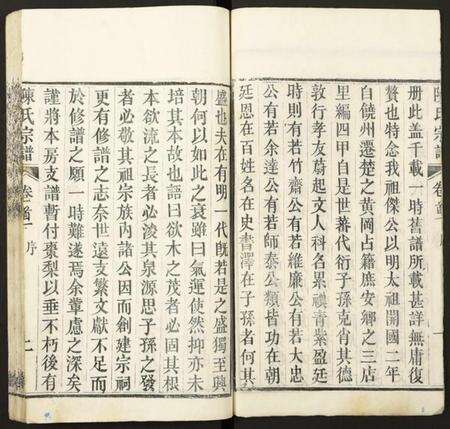 陳氏宗譜
卷首
序
一
册此盖千載一時舊譜所載甚詳無庸復
贅也特念我祖傑公以明太祖開國二年
自饒州遷楚之黄岡占籍庶安鄉之三店
里編四甲自是世蕃代衍子孫克肖其德
敦行孝友蔚起文人科名累襖青紫盈廷
時則有若竹齋公有若維廉公有若大忠
公有若余達公有若師泰公類皆功在朝
廷恩在百姓名在史書澤在子孫者何其
盛也夫在有明一代既若是之盛獨至興
朝何以如此之衰雖曰氣運使然抑亦未
培其本故也語曰欲木之茂者必固其根
本欲流之長者必浚其泉源思子孫之發
者必敬其祖宗族内諸公因而創建宗祠
更有修譜之志奈世遠支繁文獻不足而
於修譜之願一時難遂焉余輩慮之深矣
謹將本房支譜暫付棗梨以垂不朽後有
陳氏宗譜
卷首
序
二